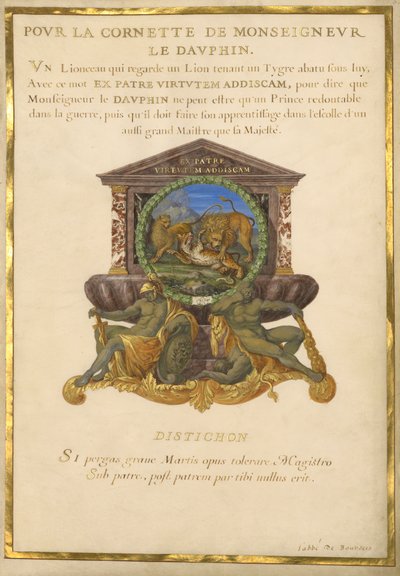 POVR LA CORNETTE DE MONSEIGNEVR
LE DAVPHIN.
VN Lionceau qui regarde un Lion tenant un Tygre abatu ſous luy,
Avec ce mot EX PATRE VIRTVTEM ADDISCAM, pour dire que
Monſeigneur le DAVPHIN ne peut eſtre qu'un Prince redoutable
dans la guerre, puis qu'il doit faire ſon apprentiſſage dans l'eſcolle d'un
auſſi grand Maiſtre que ſa Majeſté.
EX PATRE
VIRTVTEM ADDISCAM
DISTICHON
SI pergas graue Martis opus tolerare Magistro
Sub patre, poſt patrem par tibi nullus erit.
l'abbé De Bourzeis